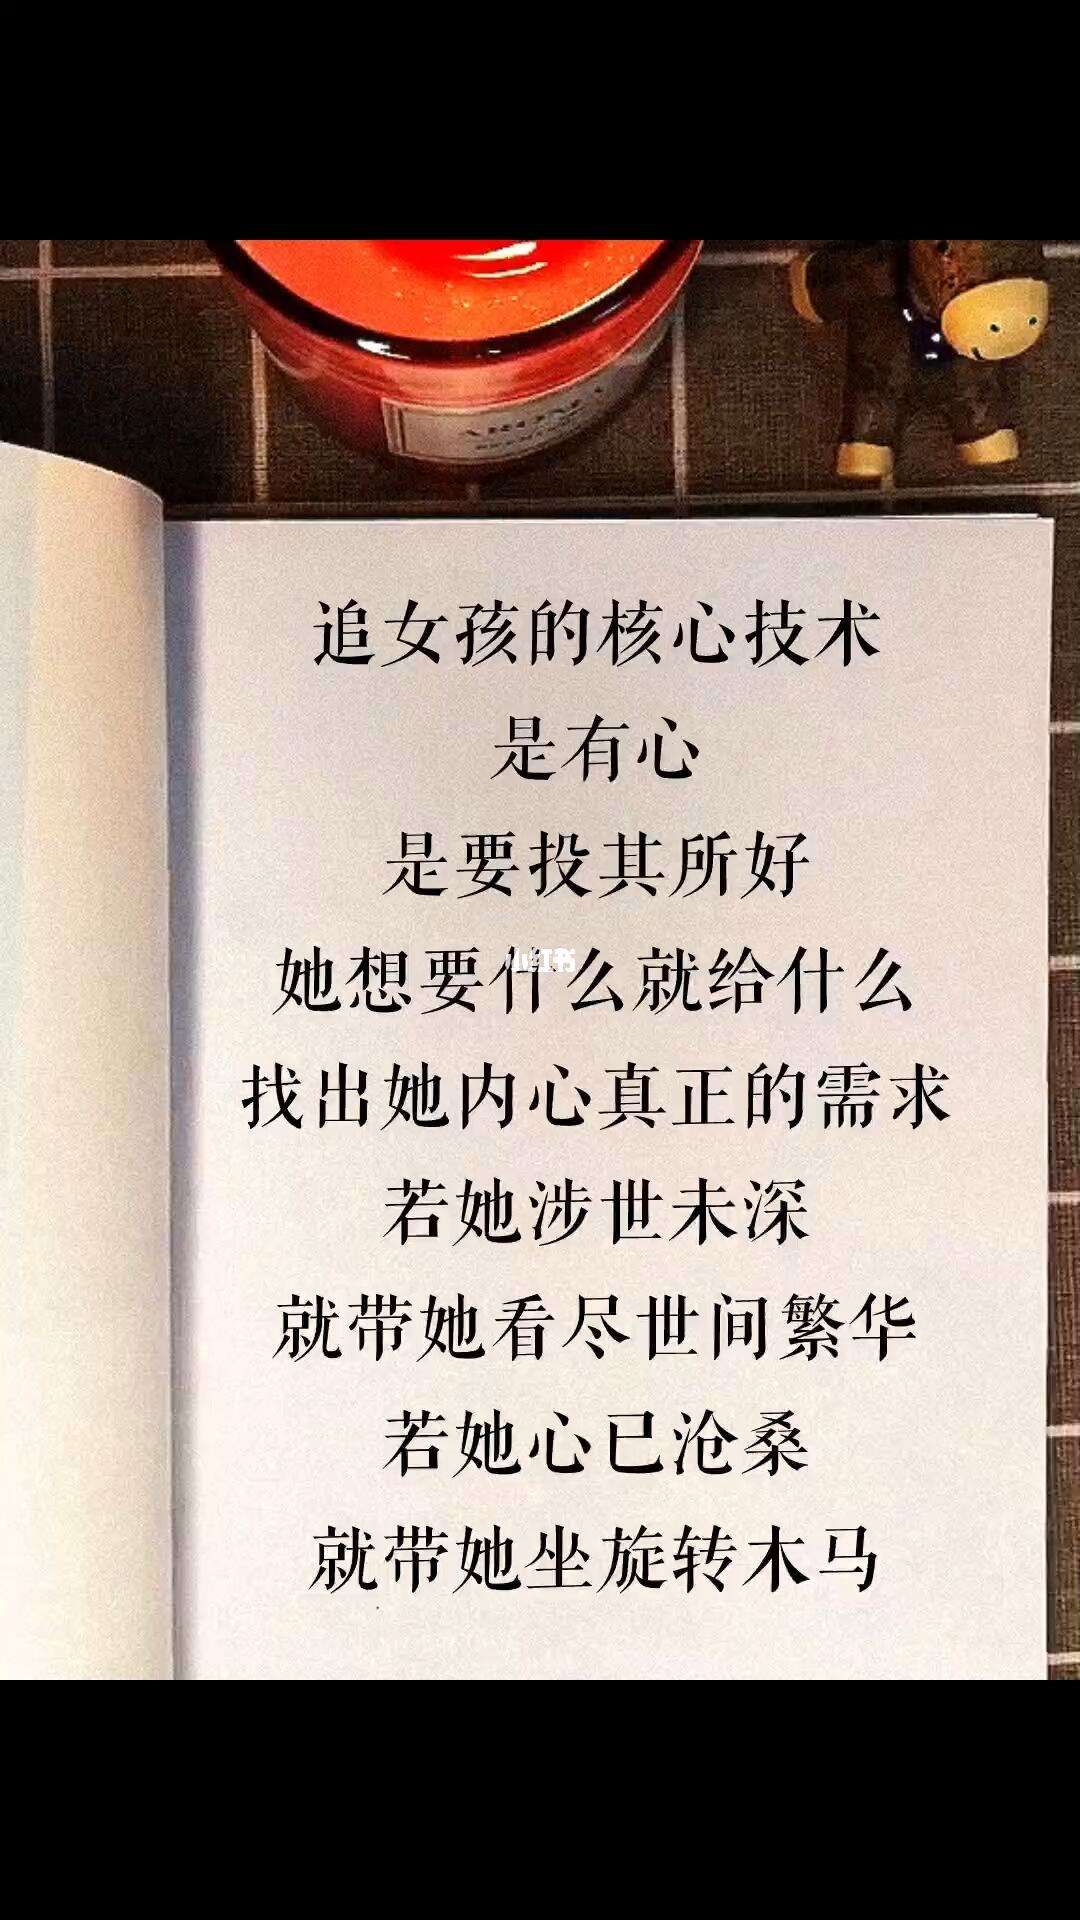 追女孩的核心技术
是有心
是要投其所好
她想要什么就给什么
小红书
找出她内心真正的需求
若她涉世未深
就带她看尽世间繁华
若她心已沧桑
就带她坐旋转木马